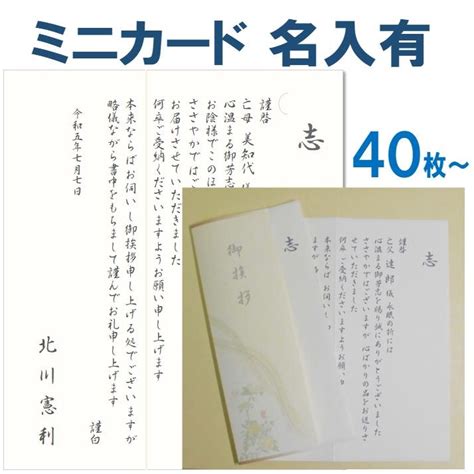 ミニカード 名入有
40枚~
志
謹啓
亡母 美知代
心温まる御芳志
お陰様でこのほ
ささやかではご
お届けさせていただきました
何卒ご受納くださいますようお願い申し上げます
本来ならばお伺いし御挨拶申し上げる処でございますが
略儀ながら書中をもちまして謹んでお礼申し上げます
謹白
令和五年七月七日
北川憲利
御挨拶
志
謹啓
亡父 達郎 儀 永眠の折には
心温まる御芳志を賜り誠にありがとうございました
ささやかではございますが 心ばかりの品をお送りさ
せていただきました
何卒 ご受納くださいますようお願い
本来ならば お伺いし
ますが